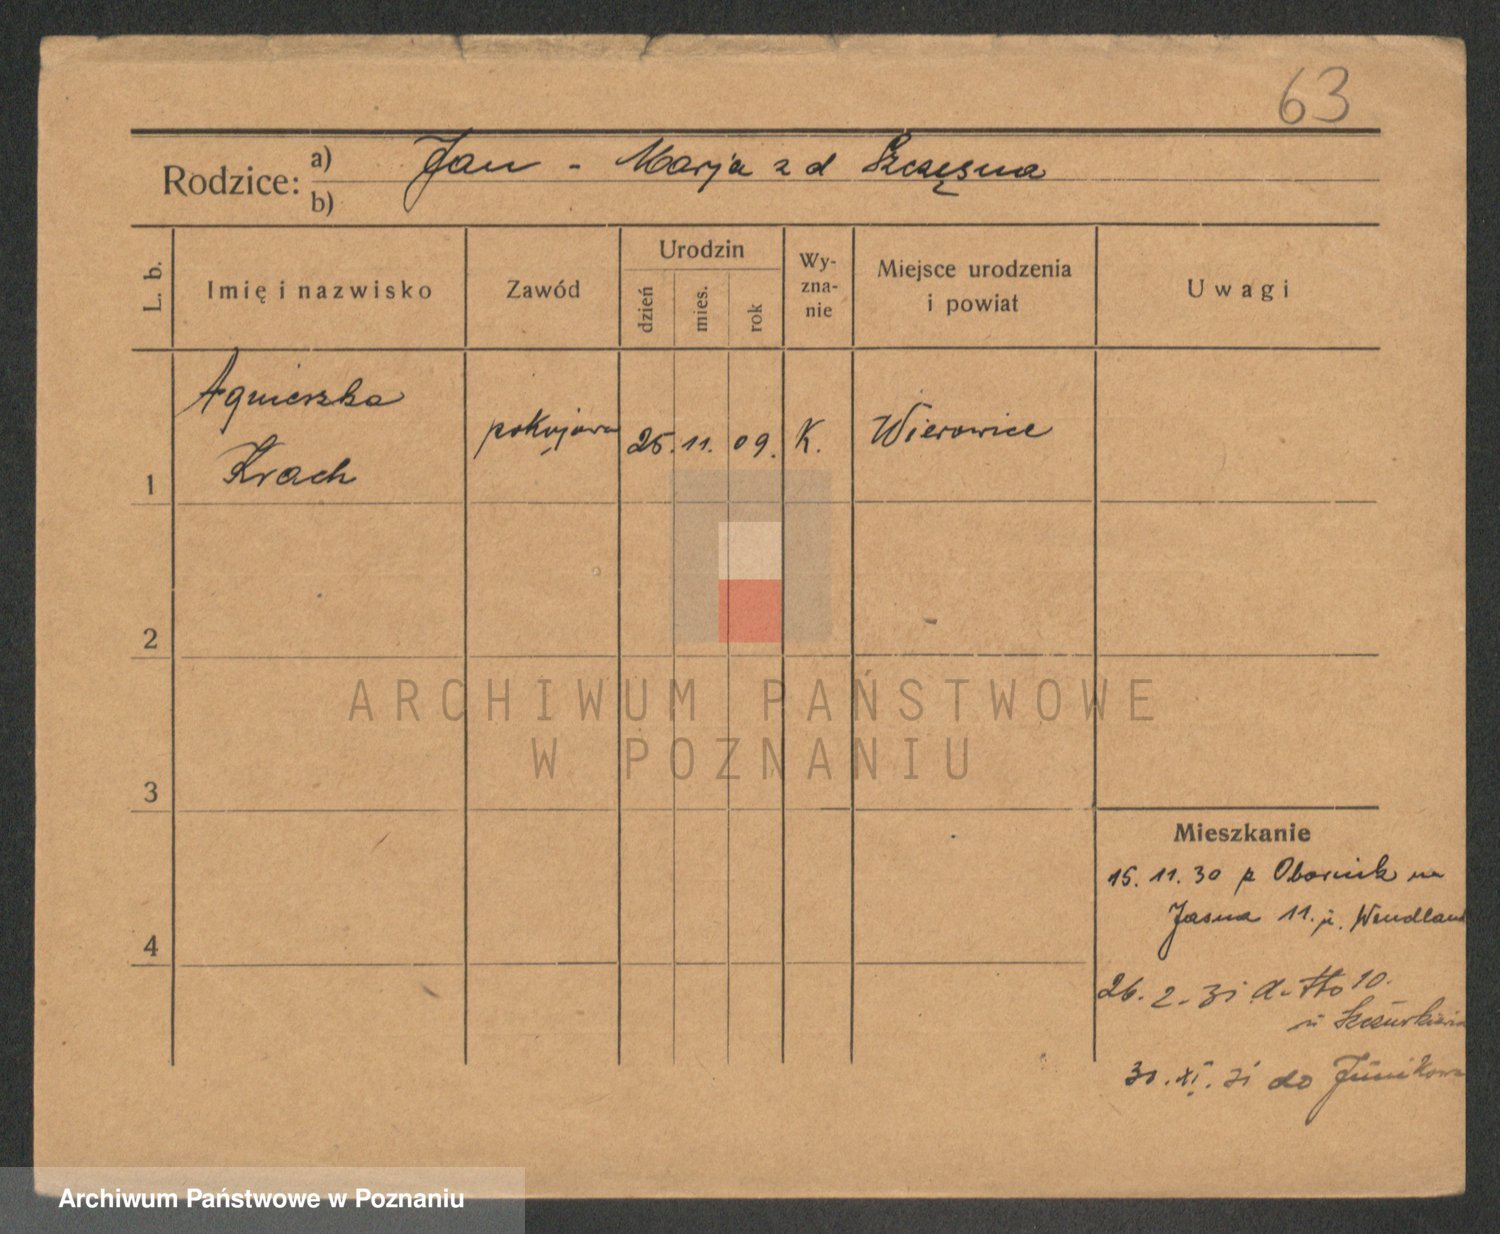 63
Rodzice: a) Jan - Marja z d Szczęsna
b)
L. b.
Imię i nazwisko
Zawód
Urodzin
dzień
mies.
rok
Wy-
zna-
nie
Miejsce urodzenia
i powiat
Uwagi
1
Agnieszka
Krach
pokojowa
25. 11. 09.
K.
Wierowice
2
3
4
ARCHIWUM PAŃSTWOWE
W POZNANIU
Mieszkanie
15. 11. 30 z Obornik na
Jasna 11. u. Wendland
26. 2. 31 d-tto 10.
u
30. XI. 31 do Junikowa
Archiwum Państwowe w Poznaniu